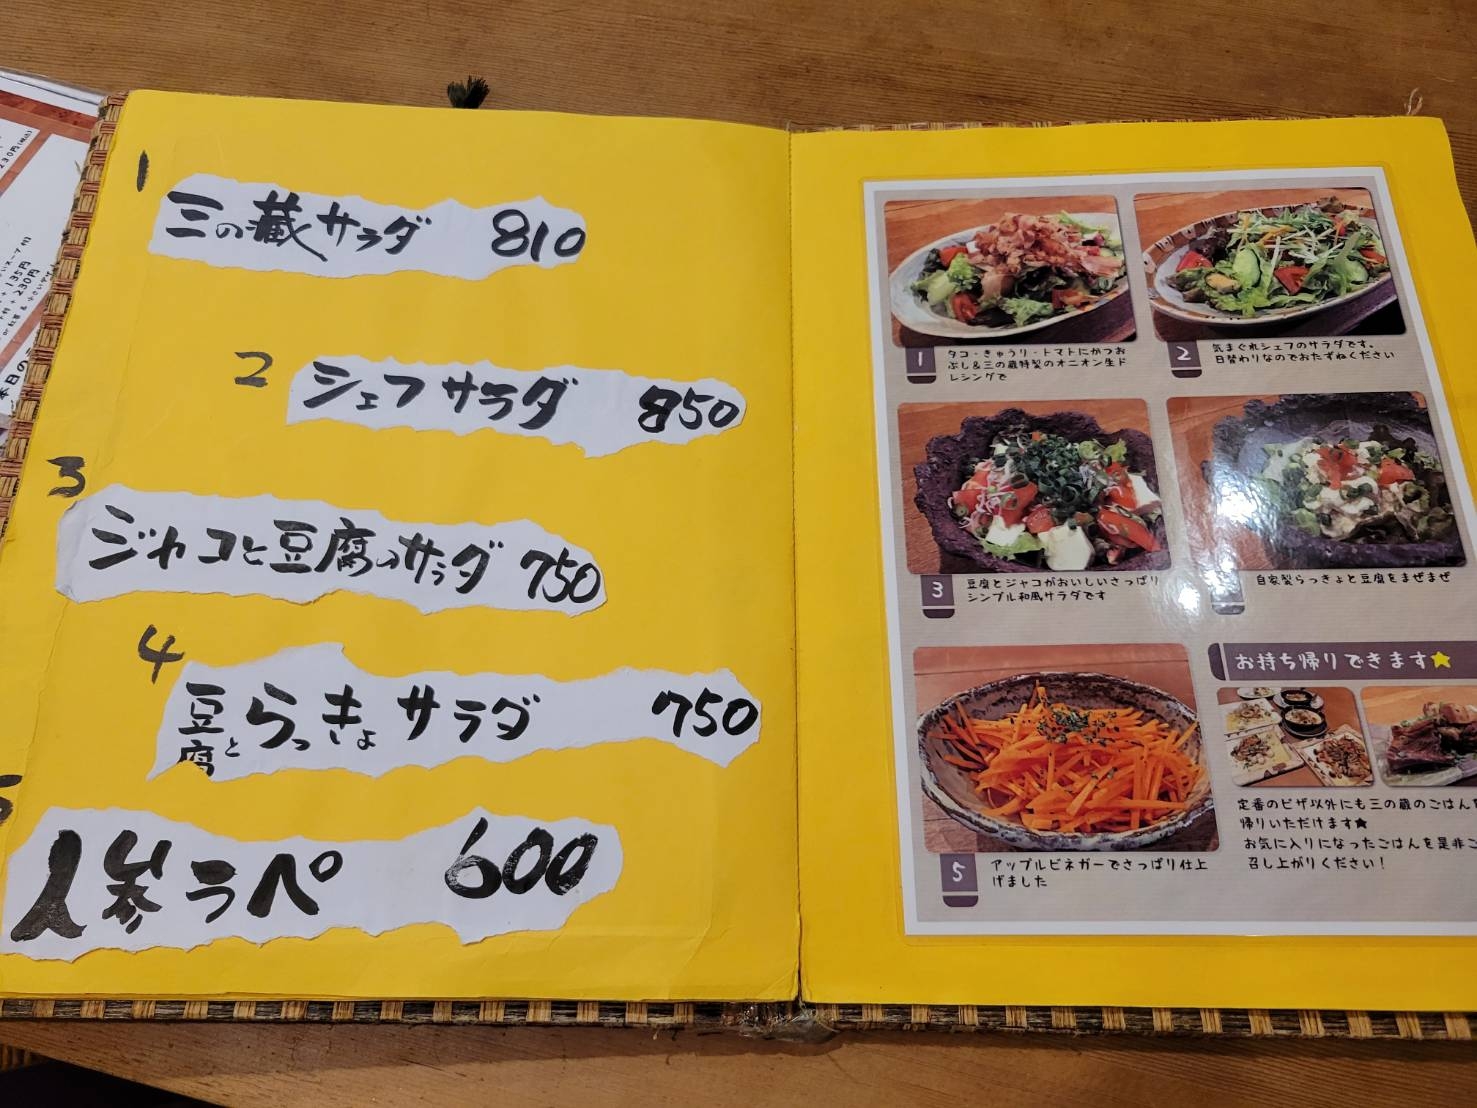 1
三の蔵サラダ 810
2
シェフサラダ 850
3
ジャコと豆腐のサラダ 750
4
豆腐とらっきょサラダ 750
人参ラペ 600
1
タコ・きゅうり・トマトにかつお
ぶし&三の蔵特製のオニオン生ド
レシングで
2
気まぐれシェフのサラダです。
日替わりなのでおたずねください
3
豆腐とジャコがおいしいさっぱり
シンプル和風サラダです
自家製らっきょと豆腐をまぜまぜ
5
アップルビネガーでさっぱり仕上
げました
お持ち帰りできます★
定番のピザ以外にも三の蔵のごはんを
帰りいただけます★
お気に入りになったごはんを是非ご
召し上がりください!
230円(税込)
+135円
+230円
本日の